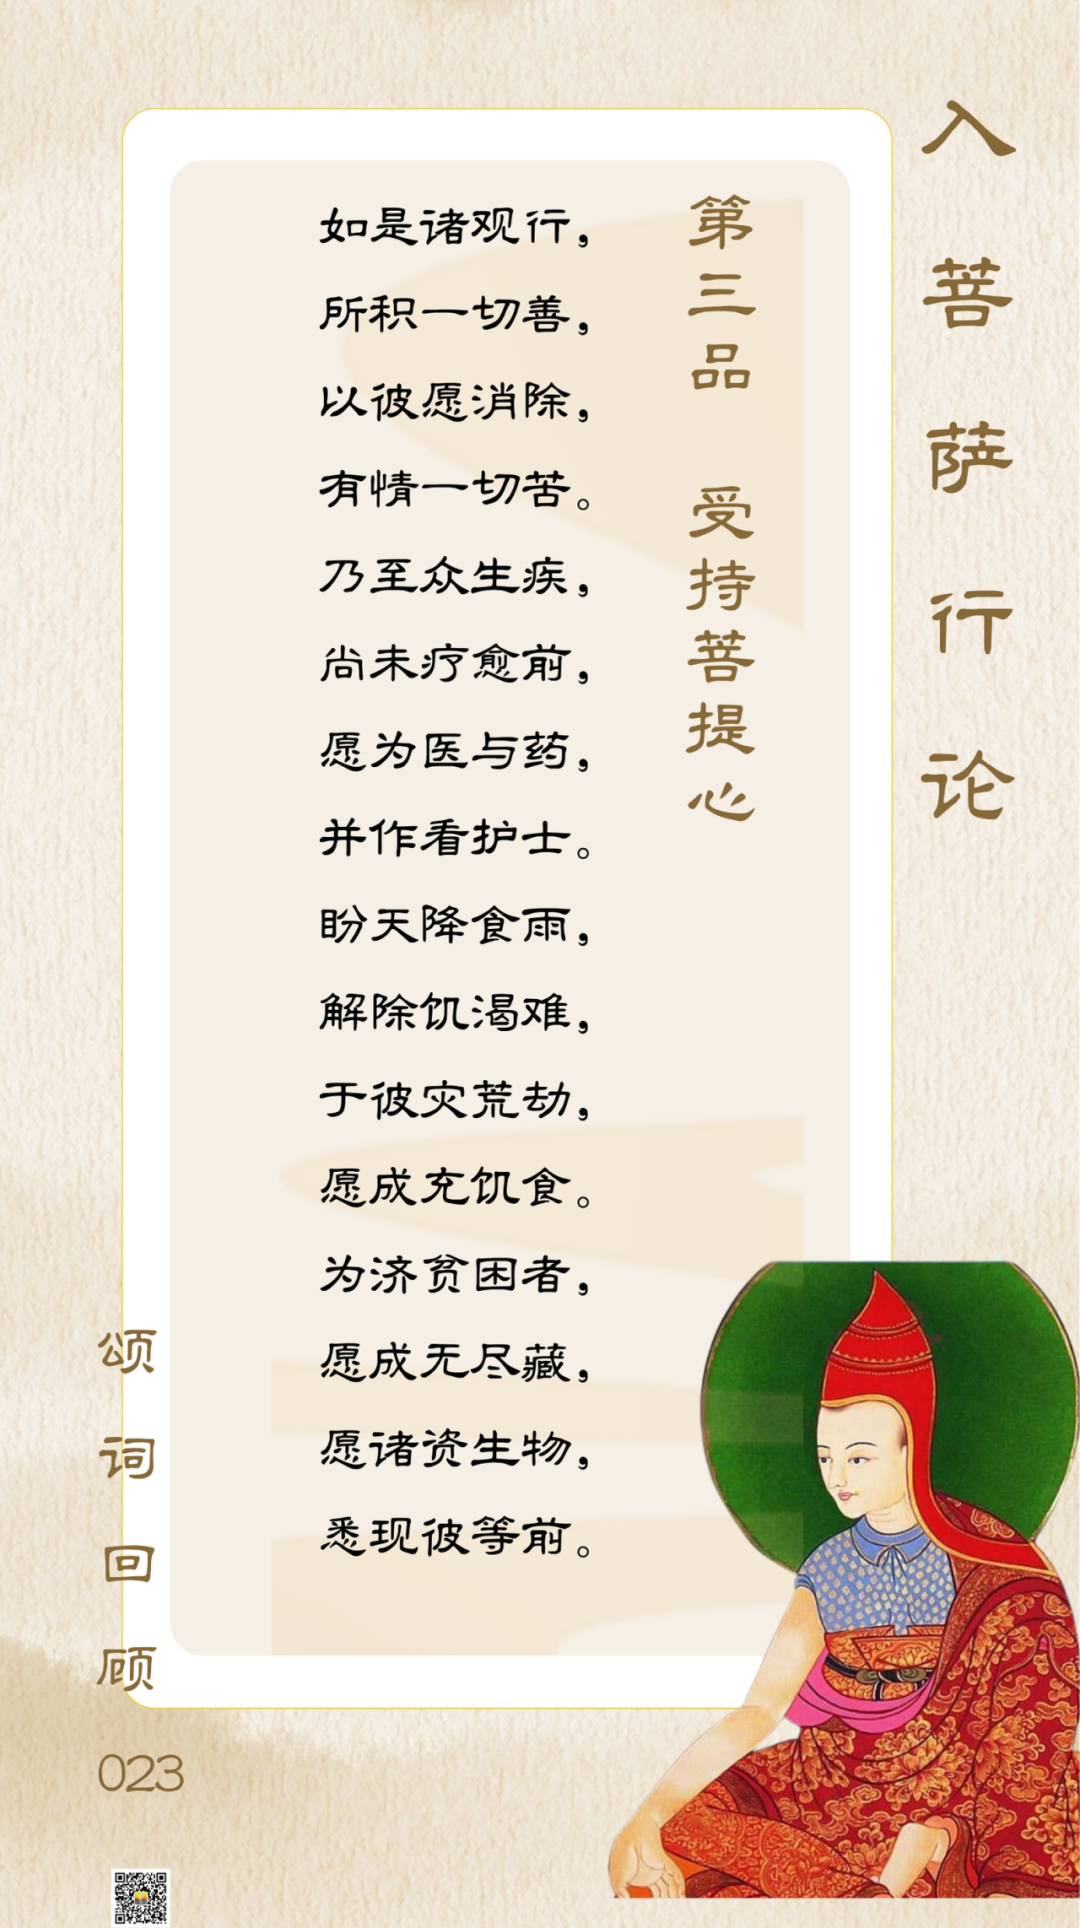 入菩萨行论
第三品 受持菩提心
如是诸观行，
所积一切善，
以彼愿消除，
有情一切苦。
乃至众生疾，
尚未疗愈前，
愿为医与药，
并作看护士。
盼天降食雨，
解除饥渴难，
于彼灾荒劫，
愿成充饥食。
为济贫困者，
愿成无尽藏，
愿诸资生物，
悉现彼等前。
颂词回顾
023